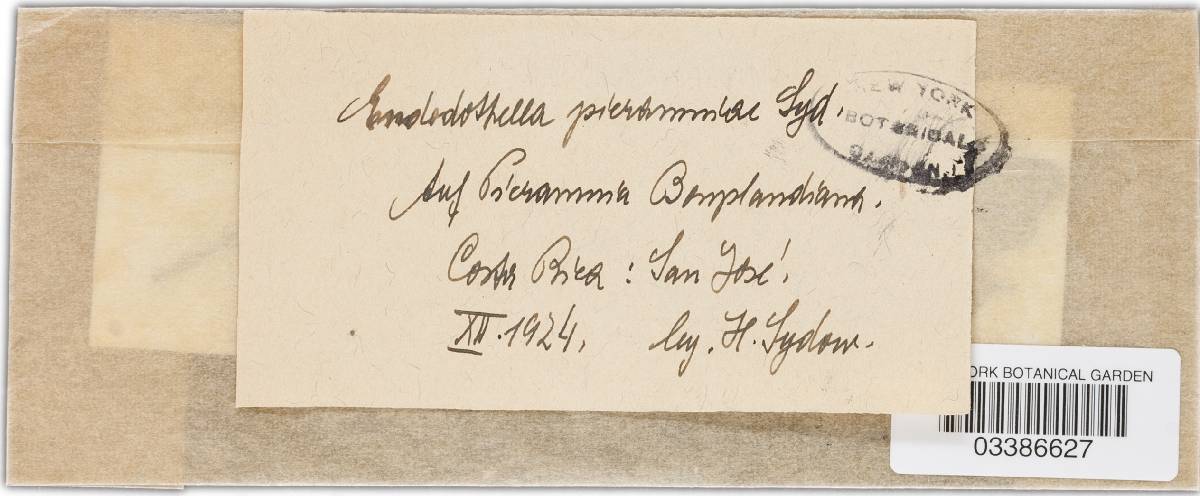 Endodothella picramniae Syd.
Auf Picramnia Bonplandiana.
Costa Rica : San José.
XII. 1924. leg. H. Sydow.
NEW YORK
BOTANICAL
GARDEN
ORK BOTANICAL GARDEN
03386627